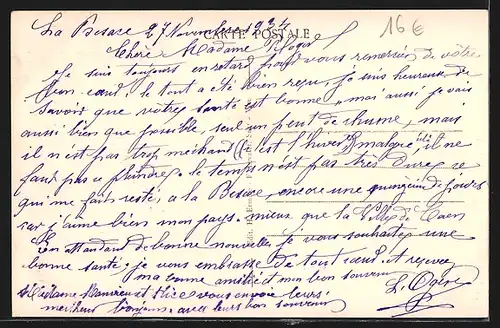 La Besace 27 Novembre 1934
16€
CARTE POSTALE
Chère Madame Roger
Je suis toujours en retard pour vous remercier de vôtre
bon card; le tout a été bien reçu, je suis heureuse de
savoir que vôtre santé est bonne, moi aussi je vais
aussi bien que possible, seul un peut de rhume, mais
il n'est pas trop méchant (c'est l'hiver) malgré il ne
faut pas se plaindre, le temps n'est pas très dure, ce
qui me fait resté, a la Besace, encore une quinzaine de jours
car j'aime bien mon pays, mieux que la Ville de Caen
En attendant de bonne nouvelle je vous souhaites une
bonne santé, je vous embrasse de tout cœur et recevez
ma bonne amitié et mon bon souvenir
Madame et vous envoie leurs
meilleurs bonjours avec leurs bon souvenir
L. Ogier